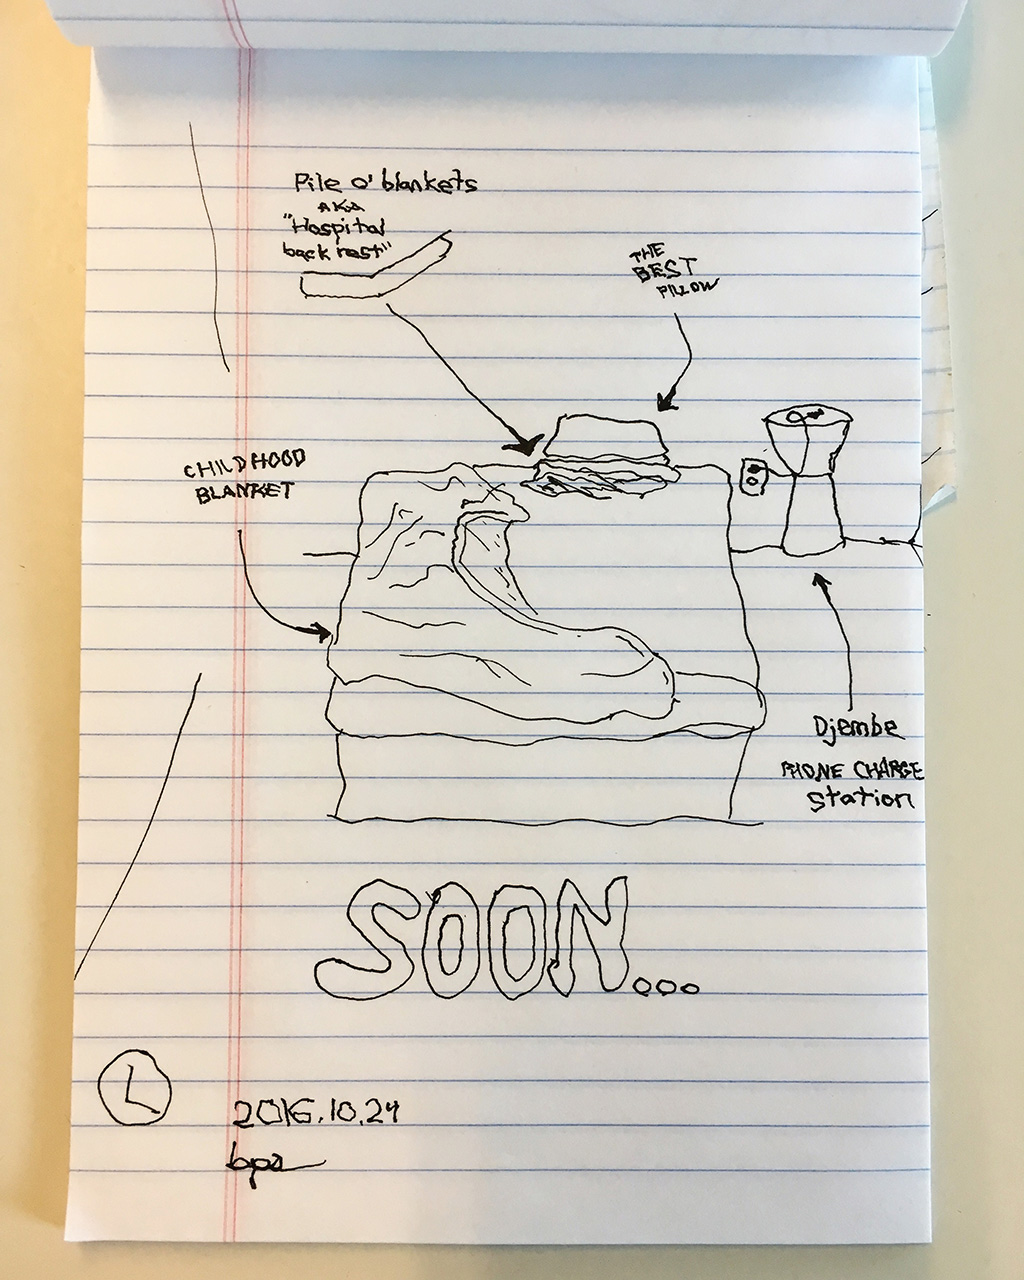 Pile o' blankets
AKA
"Hospital
back rest"
THE
BEST
PILLOW
CHILDHOOD
BLANKET
Djembe
PHONE CHARGE
Station
SOON...
L
2016.10.24
bpa